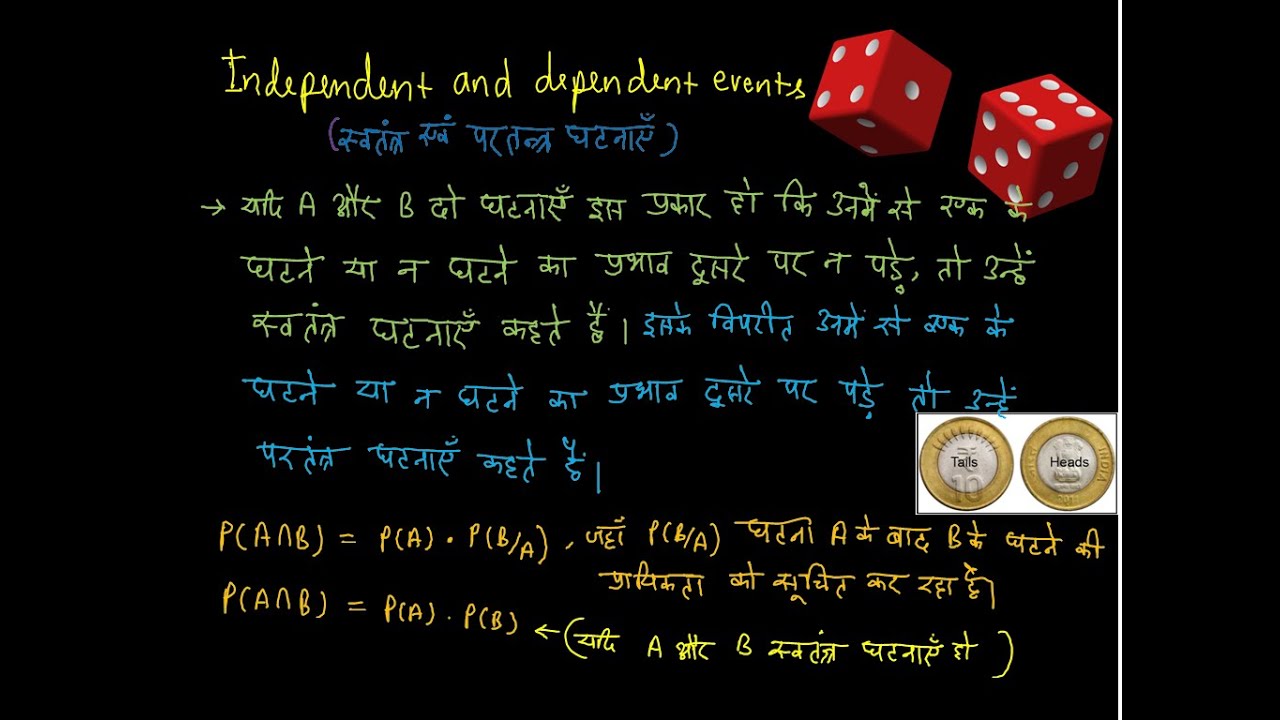 Independent and dependent events
(स्वतंत्र एवं परतन्त्र घटनाएँ)
→ यदि A और B दो घटनाएँ इस प्रकार हो कि उनमें से एक के
घटने या न घटने का प्रभाव दूसरे पर न पड़े, तो उन्हें
स्वतंत्र घटनाएँ कहते हैं। इसके विपरीत उनमें से एक के
घटने या न घटने का प्रभाव दूसरे पर पड़े तो उन्हें
परतंत्र घटनाएँ कहते हैं।
Tails Heads
10 2011 INDIA
P(A∩B) = P(A) · P(B/A), जहाँ P(B/A) घटना A के बाद B के घटने की
प्रायिकता को सूचित कर रहा है।
P(A∩B) = P(A) · P(B) ← (यदि A और B स्वतंत्र घटनाएँ हो)